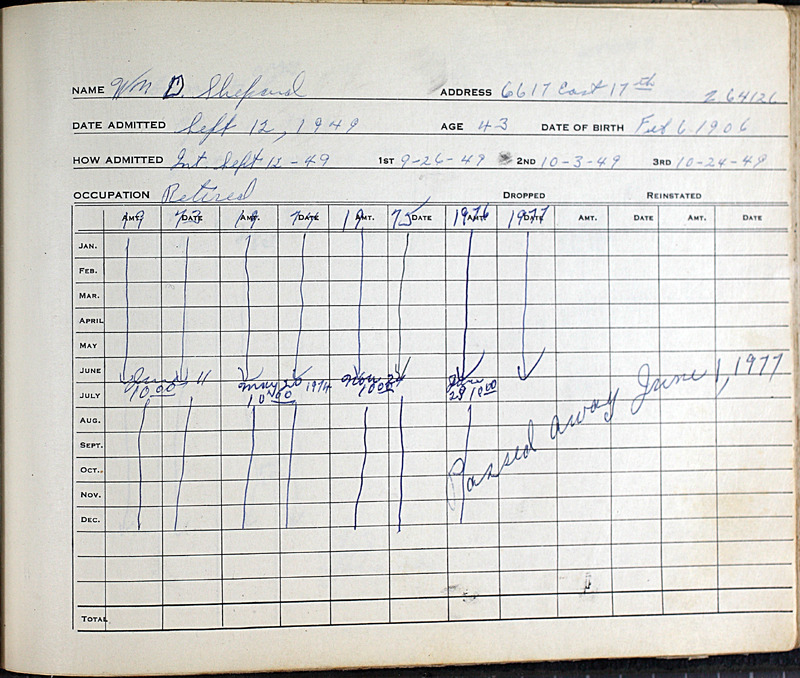 NAME Wm D. Shepard ADDRESS 6617 East 17th 264126
DATE ADMITTED Sept 12, 1949 AGE 43 DATE OF BIRTH Feb 6 1906
HOW ADMITTED Int. Sept 12-49 1ST 9-26-49 2ND 10-3-49 3RD 10-24-49
OCCUPATION Retired DROPPED REINSTATED
19 73 19 74 19 75 1976 1977
AMT. DATE AMT. DATE AMT. DATE AMT. DATE AMT. DATE AMT. DATE
JAN.
FEB.
MAR.
APRIL
MAY
JUNE
June 11 May 20 1974 June
JULY 10.00 10.00 10.00 28 10.00
Passed away June 1, 1977
AUG.
SEPT.
OCT.
NOV.
DEC.
TOTAL